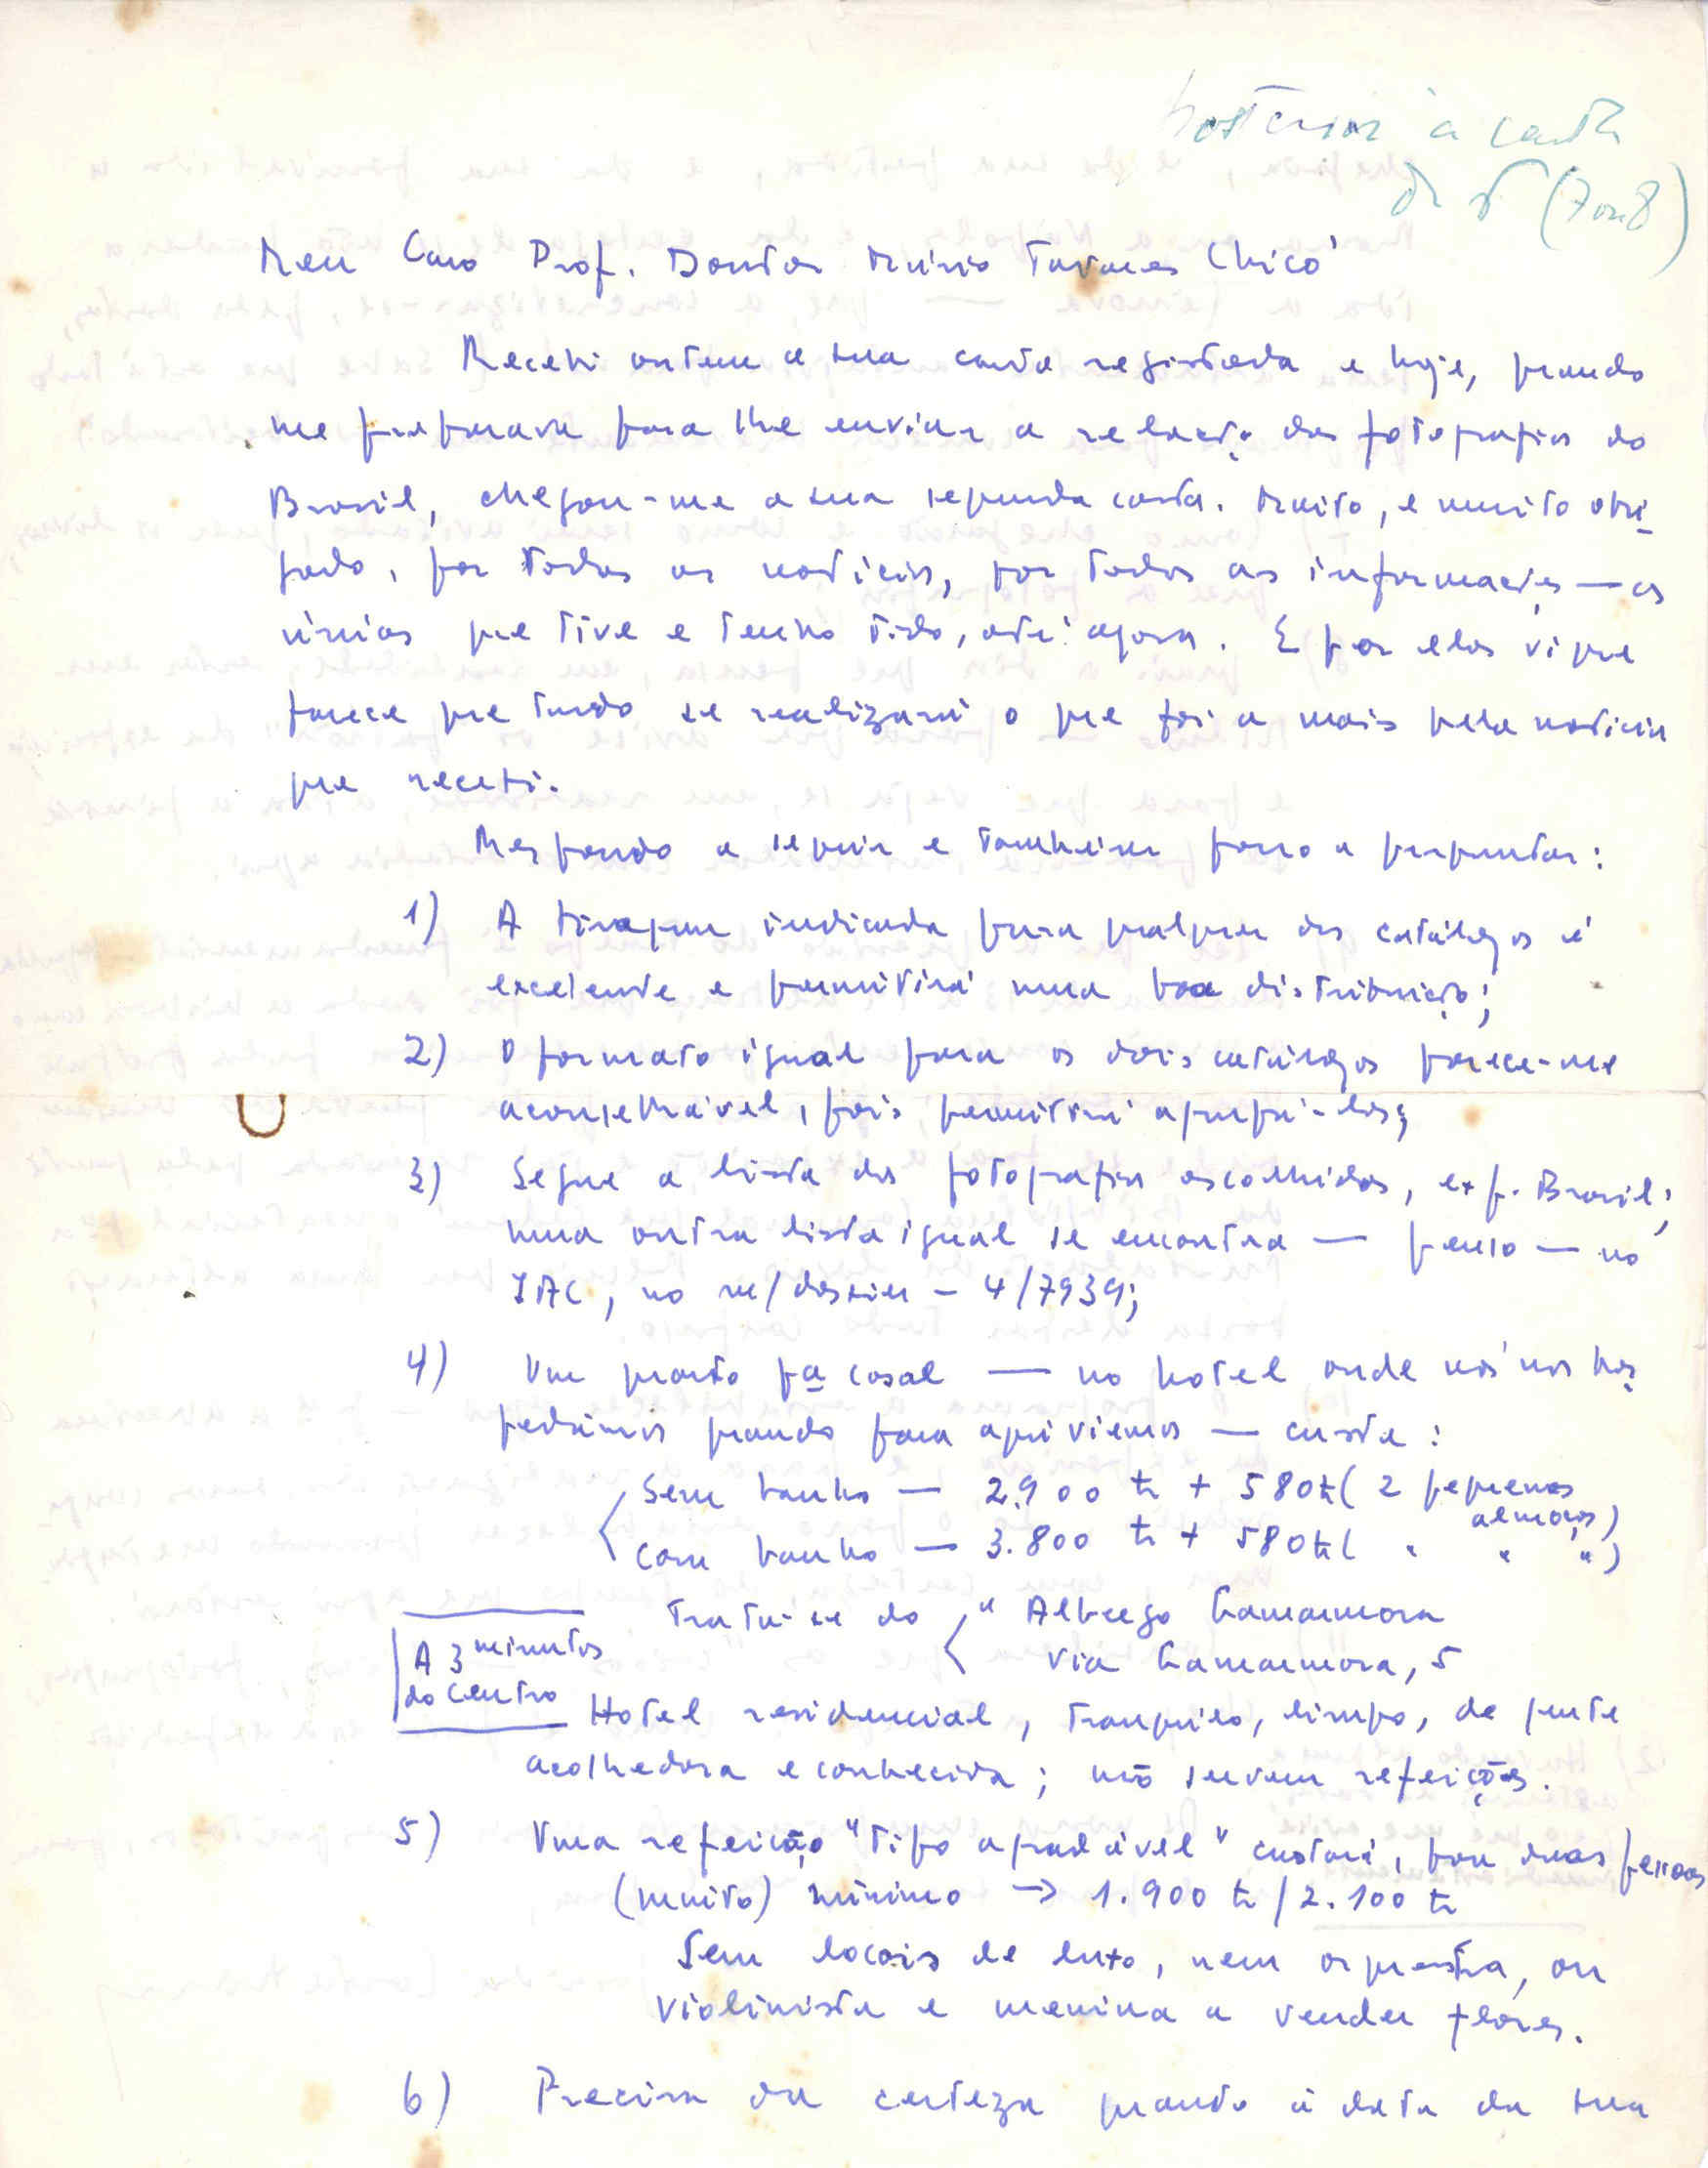 posterior à carta
de 5 (7 ou 8)
Meu Caro Prof. Doutor Mário Tavares Chicó
Recebi ontem a sua carta registada e hoje, quando
me preparava para lhe enviar a relação das fotografias do
Brasil, chegou-me a sua segunda carta. Muito, e muito obri-
gado, por todas as notícias, por todas as informações — as
únicas que tive e tenho tido, até agora. E por elas vi que
parece que tudo se realizará o que foi a mais grata notícia
que recebi.
Respondo a seguir e também passo a perguntar:
1) A tiragem indicada para qualquer dos catálogos é
excelente e permitirá uma boa distribuição;
2) O formato igual para os dois catálogos parece-me
aconselhável, pois permitirá agrupá-los;
3) Segue a lista das fotografias escolhidas, exp. Brasil;
uma outra lista igual se encontra — penso — no
IAC, no m/dossier - 4/7939;
4) Um quarto pª casal — no hotel onde nós nos hos-
pedámos quando para aqui viemos — custa:
Sem banho — 2.900 £ + 580 £ ( 2 pequenos
almoços)
Com banho — 3.800 £ + 580 £ ( " " ")
Trata-se do "Albergo
Via , 5
A 3 minutos
do centro
Hotel residencial, tranquilo, limpo, de gente
acolhedora e conhecida; não servem refeições.
5) Uma refeição "tipo agradável" custará, para duas pessoas
(muito) mínimo → 1.900 £ / 2.100 £
Sem locais de luxo, nem orquestra, ou
violinista e menina a vender flores.
6) Precisa da certeza quanto à data da sua